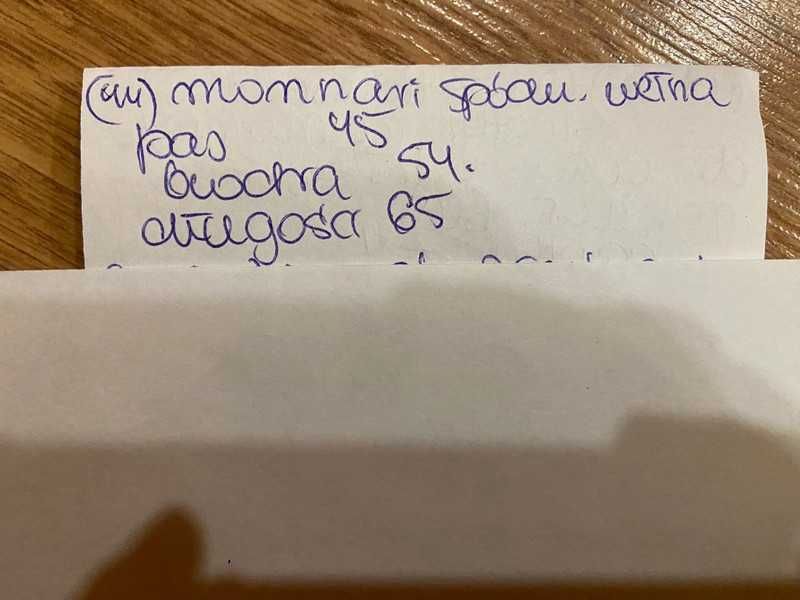 (44) monnari spódn. wełna
pas 45
biodra 54.
długość 65